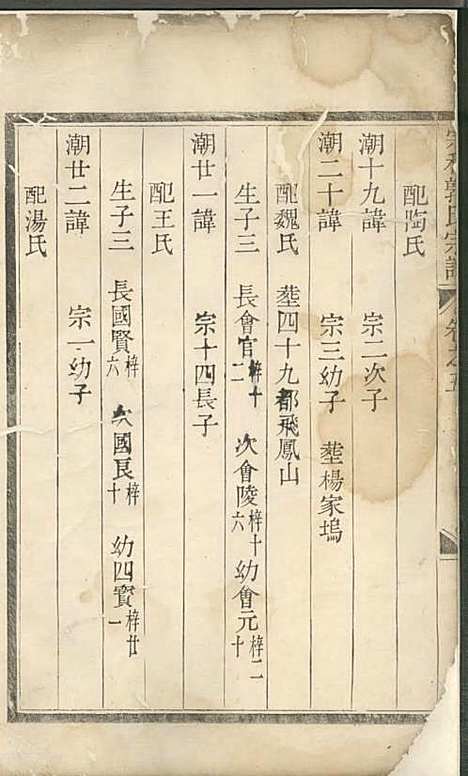 郭氏宗譜 卷之五
配陶氏
潮十九諱 宗二次子
潮二十諱 宗三幼子 塟楊家塢
配魏氏 塟四十九都飛鳳山
生子三 長會官梓十二 次會陵梓十六 幼會元梓二十
潮廿一諱 宗十四長子
配王氏
生子三 長國賢梓六 次國良梓十 幼四寳梓廿一
潮廿二諱 宗一幼子
配湯氏